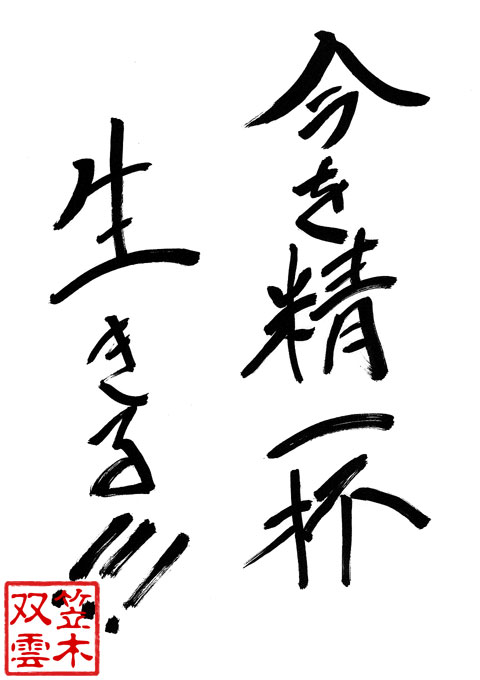 今を精一杯
生きる!!!
笠木
双雲